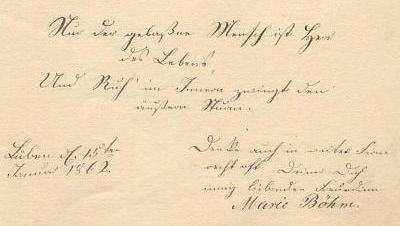 Nur der gelaßne Mensch ist Herr
des Lebens,
Und Ruh' im Innern zwingt den
äußern Sturm.
Lüben d. 15ten
Januar 1862.
Denke auch in weiter Ferne
recht oft Deiner Dich
innig liebenden Freundin
Marie Böhm.